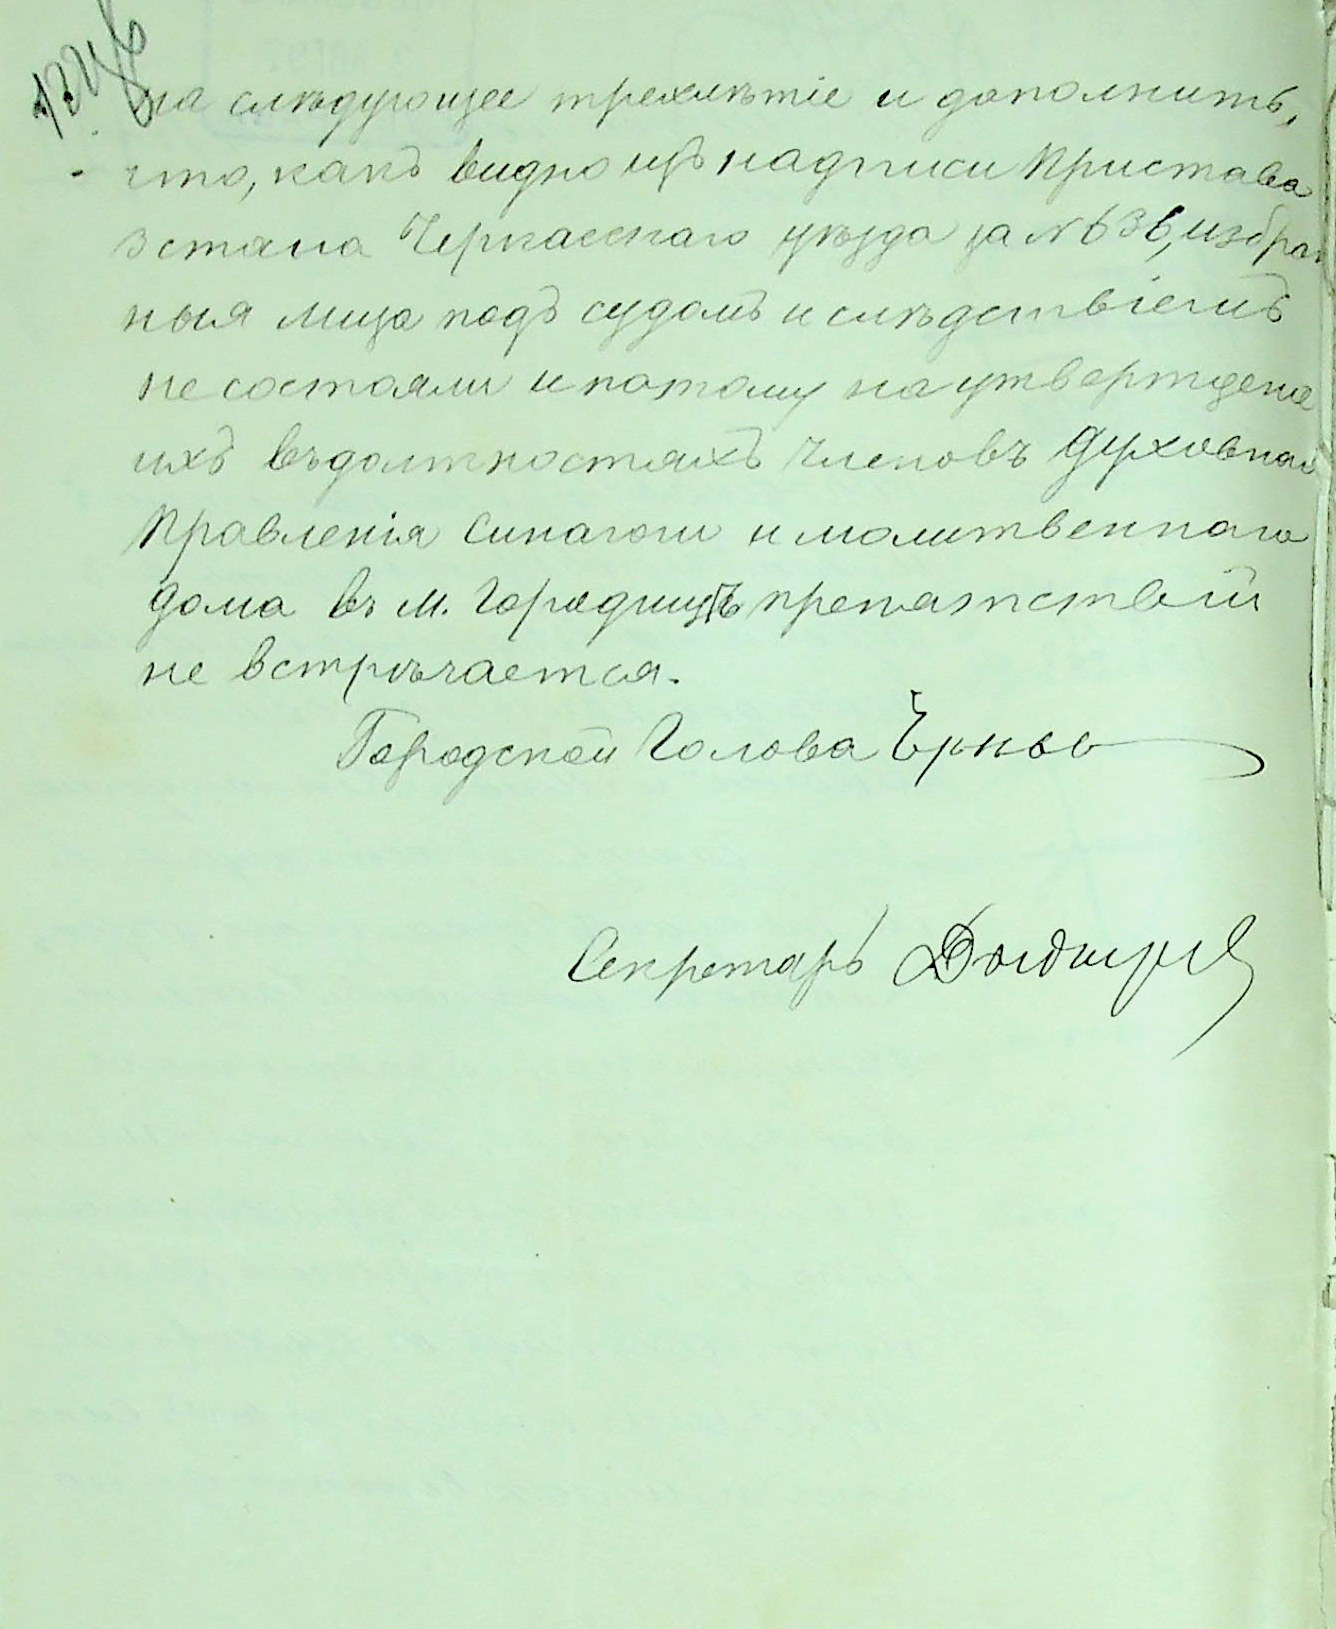 на слѣдующее трехлѣтіе и дополнить,
что, какъ видно изъ надписи Пристава
3 стана Черкасскаго уѣзда за № 636, избран
ныя лица подъ судомъ и слѣдствіемъ
не состояли и потому на утвержденіе
ихъ въ должностяхъ членовъ Духовнаго
Правленія Синагоги и молитвеннаго
дома въ м. Городищѣ препятствій
не встрѣчается.
Городской Голова
Секретарь